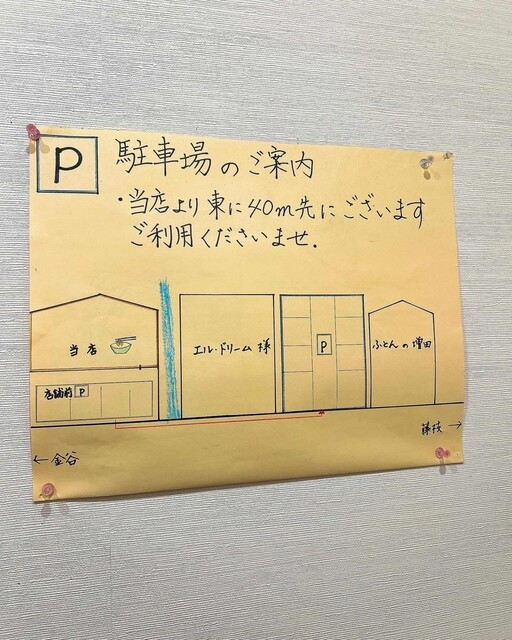 P 駐車場のご案内
・当店より東に40m先にございます
ご利用くださいませ.
当店
エル・ドリーム様
P
ふとんの増田
店舗前 P
← 金谷
藤枝 →